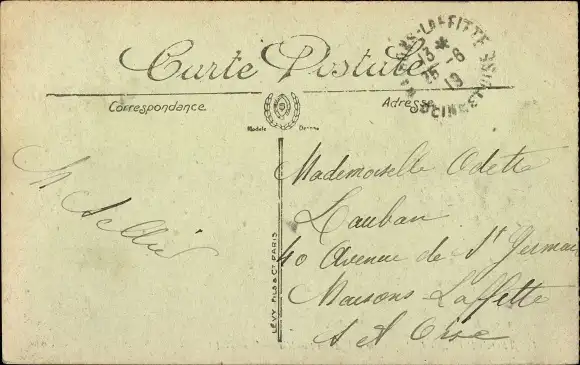 Carte Postale
MAISONS-LAFFITTE
13 *
25 -6
19
Correspondance
Adresse
Modèle Déposé
LÉVY FILS & Cie PARIS
Mademoiselle Odette
Lauban
40 Avenue de St Germain
Maisons-Laffitte
S et Oise